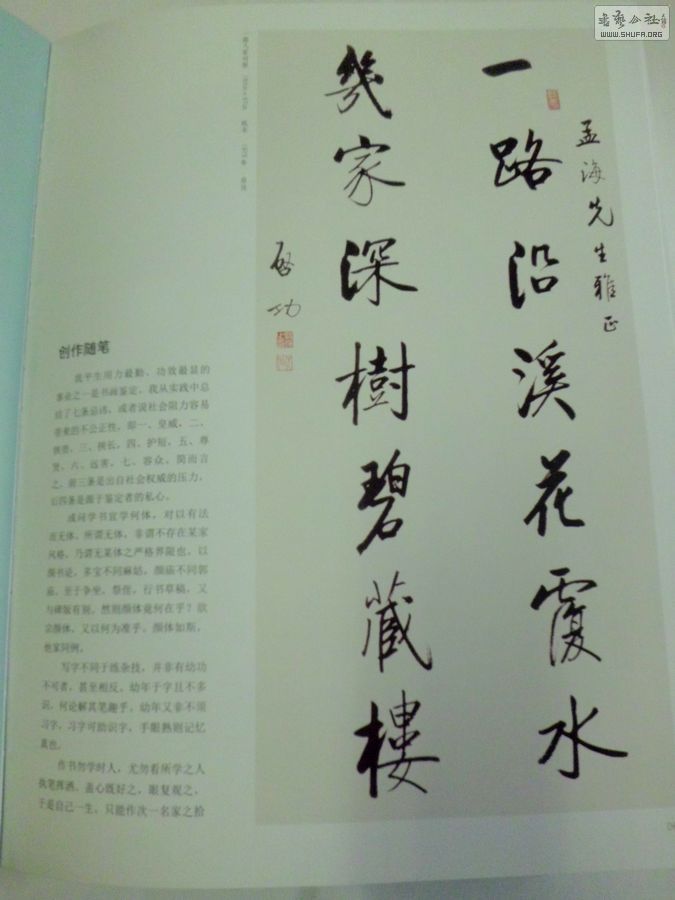 書藝公社
WWW.SHUFA.ORG
孟海先生雅正
一路沿溪花覆水
幾家深樹碧藏樓
啓功
创作随笔
我平生用力最勤、功效最显的
事业之一是书画鉴定，我从实践中总
结了七条忌讳，或者说社会阻力容易
带来的不公正性，即一、皇威，二、
挟贵，三、挟长，四、护短，五、尊
贤，六、远害，七、容众。简而言
之，前三条是出自社会权威的压力，
后四条是源于鉴定者的私心。
或问学书宜学何体，对以有法
而无体。所谓无体，非谓不存在某家
风格，乃谓无某体之严格界限也。以
颜书论，多宝不同麻姑，颜庙不同郭
庙。至于争坐、祭侄，行书草稿，又
与碑版有别。然则颜体竟何在乎？欲
宗颜体，又以何为准乎。颜体如斯，
他家同例。
写字不同于练杂技，并非有幼功
不可者，甚至相反，幼年于字且不多
识，何论解其笔趣乎。幼年又非不须
习字，习字可助识字，手眼熟则记忆
真也。
作书勿学时人，尤勿看所学之人
执笔挥洒。盖心既好之，眼复观之，
于是自己一生，只能作次一名家之拾